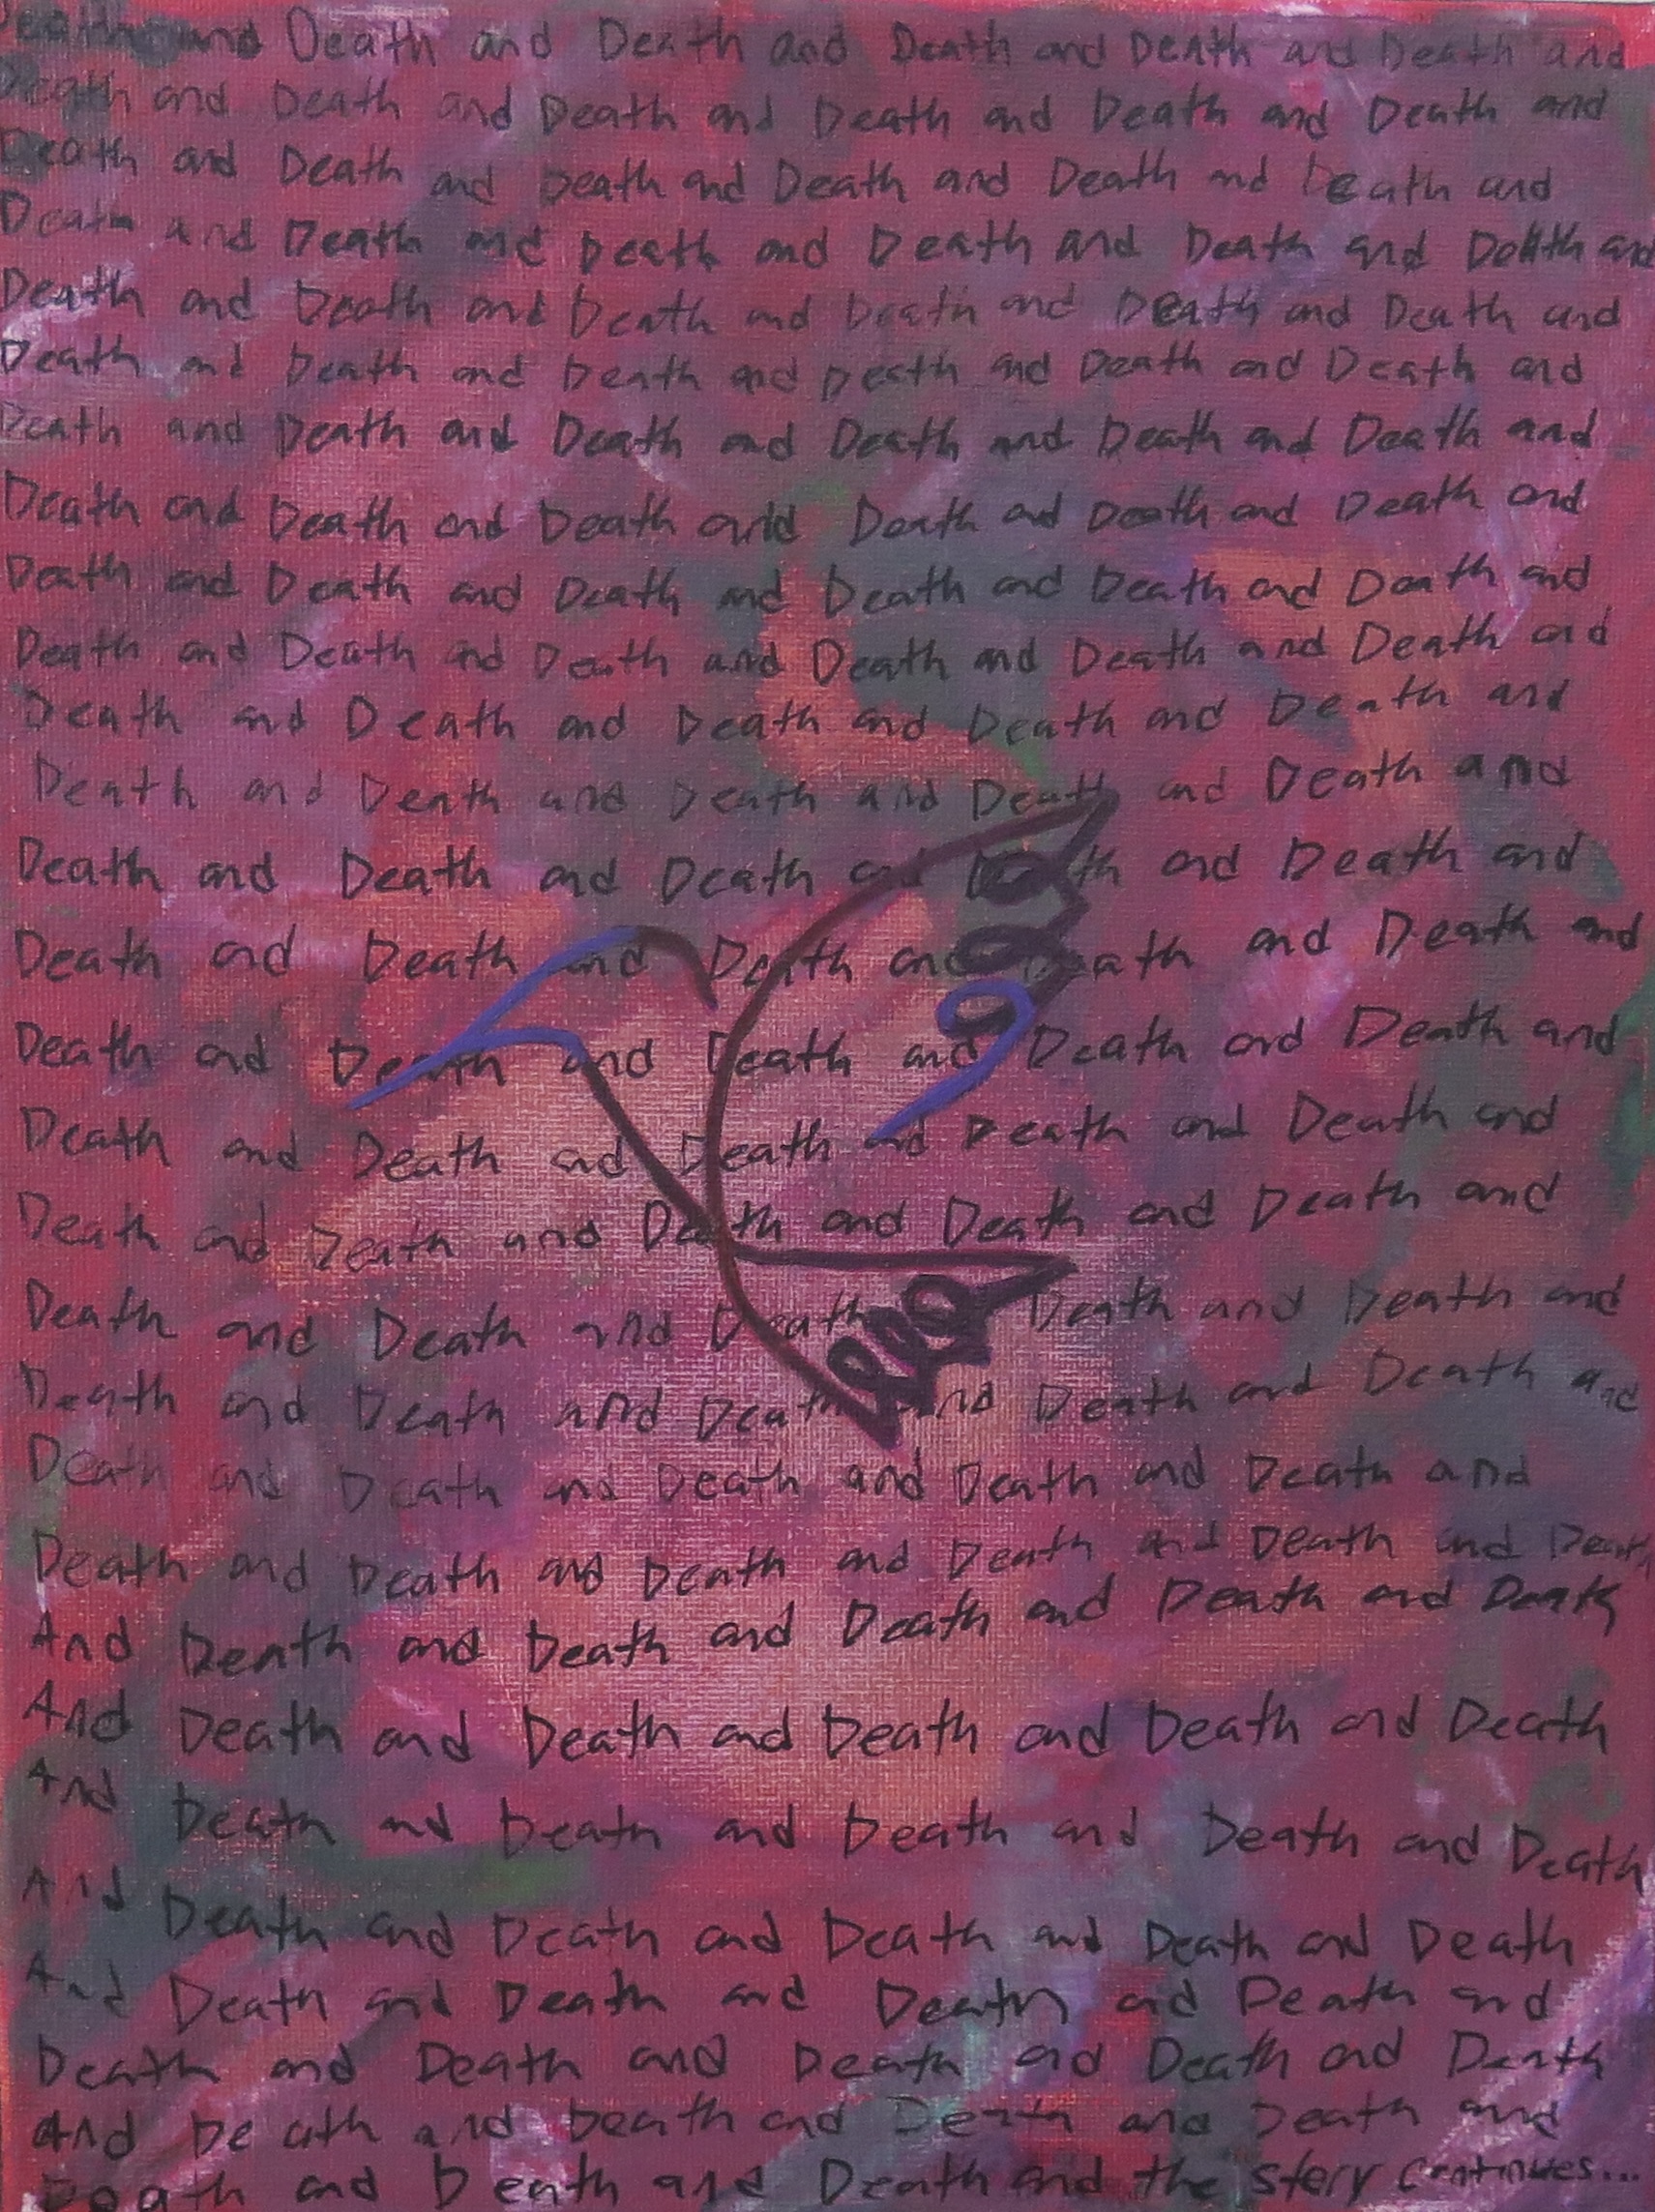 Death and Death and Death and Death and Death and Death and
Death and Death and Death and Death and Death and Death and
Death and Death and Death and Death and Death and Death and
Death and Death and Death and Death and Death and Death and
Death and Death and Death and Death and Death and Death and
Death and Death and Death and Death and Death and Death and
Death and Death and Death and Death and Death and Death and
Death and Death and Death and Death and Death and Death and
Death and Death and Death and Death and Death and Death and
Death and Death and Death and Death and Death and Death and
Death and Death and Death and Death and Death and
Death and Death and Death and Death and Death and
Death and Death and Death and Death and Death and
Death and Death and Death and Death and Death and
Death and Death and Death and Death and Death and
Death and Death and Death and Death and Death and
Death and Death and Death and Death and Death and
Death and Death and Death Death and Death and
Death and Death and Death and Death and Death and
Death and Death and Death and Death and Death and
Death and Death and Death and Death and Death and Death
And Death and Death and Death and Death and Death
And Death and Death and Death and Death and Death
And Death and Death and Death and Death and Death
And Death and Death and Death and Death and Death
And Death and Death and Death and Death and
Death and Death and Death and Death and Death
And Death and Death and Death and Death and
Death and Death and Death and the story continues...